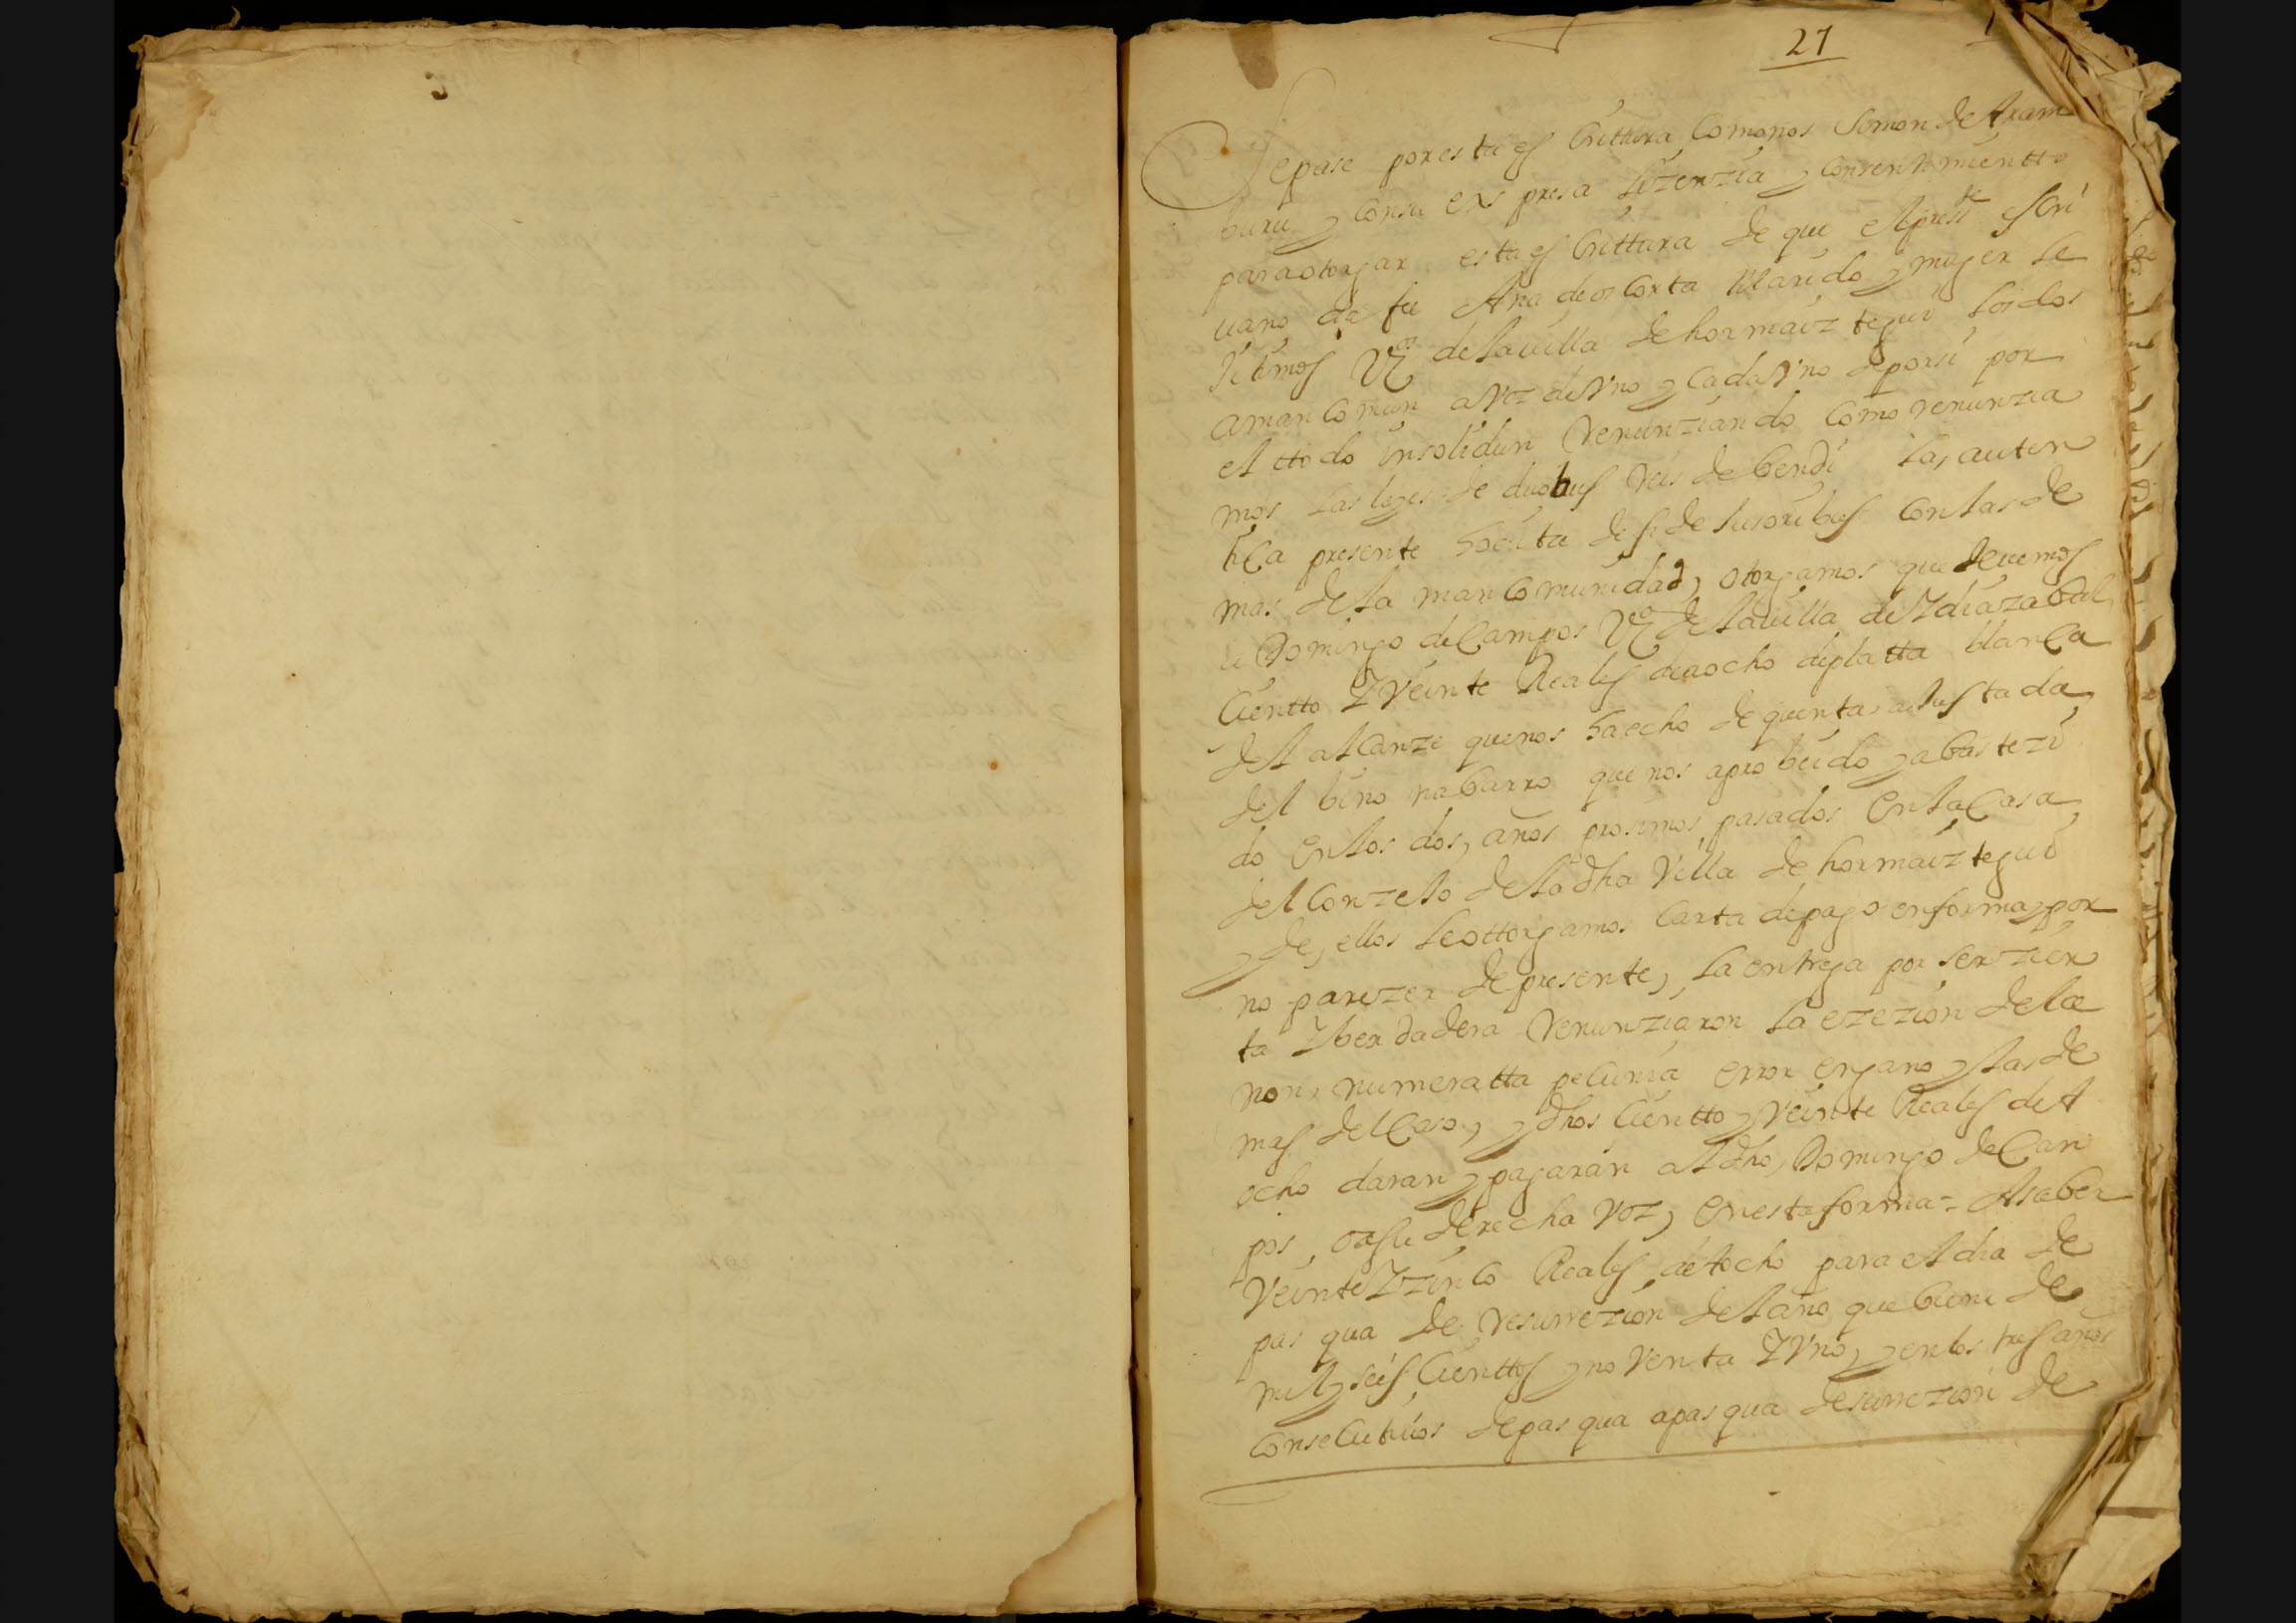 27
Sepase por esta escrittura Como nos Simon de Aram
buru y Con su expresa lizenzia y Consentimientto
para otorgar esta escrittura de que el preste escri
uano da fee Ana de os Corta Marido y muger le
jitimos Vos de la uilla de hormaiztegui los dos
aman Comun a voz de Vno y Cada Vno de por si por
el ttodo insolidun Renunziando Como renunzia
mos las leyes de duobus Reis de bendi las auten
tiCa presente hoc ita de fide Jusoribus Con las de
mas de la man Comunidad, otorgamos que deuemos
a Domingo de Campos Vo de la uilla de Ydiazabal
Cientto Y Veinte Reales de a ocho de platta blanCa
del alCanze que nos ha echo de quentas a Justada
del bino nabarro que nos a probeido y abastezi
do en los dos, años prosimos pasados en la Casa
del Conzejo de la dha Villa de hormaiztegui
y de, ellos le ottorgamos Carta de pago en forma y por
no parezer de presente, la entrega por ser zier
ta Y berdadera Renunziaron la ezezion de la
non, numeratta peCunia error engano y las de
mas del Caso, y dhos Cientto y Veinte Reales de A
ocho daran y pagaran al dho, Domingo de Can
pos, o a su derecha voz, en esta forma = A saber
Veinte Y zinCo Reales de Aocho para el dia de
pas qua de resurrezion del año que biene de
mil y seis Cienttos y no Venta Y Vno, y en los tres años
ConseCutiuos de pas qua a pas qua de surrezion de